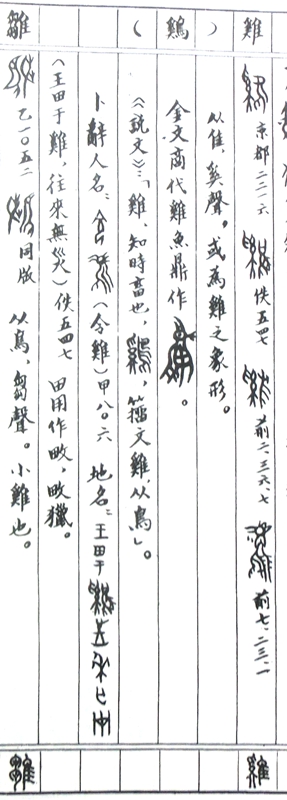 雞 京都二二一六 佚五四七 前二、三六、七 前七、二三、一
从隹，奚聲。或為雞之象形。
）
鷄 金文商代雞魚鼎作 。
（ 《說文》：「雞，知時畜也， ，籀文雞，从鳥」。
卜辭人名： （令雞）甲八〇六 地名：王田于
（王田于雞，往來無災）佚五四七 田用作畋，畋獵。
雛 乙一〇五二 同版 从鳥，芻聲。小雞也。
雞
雛